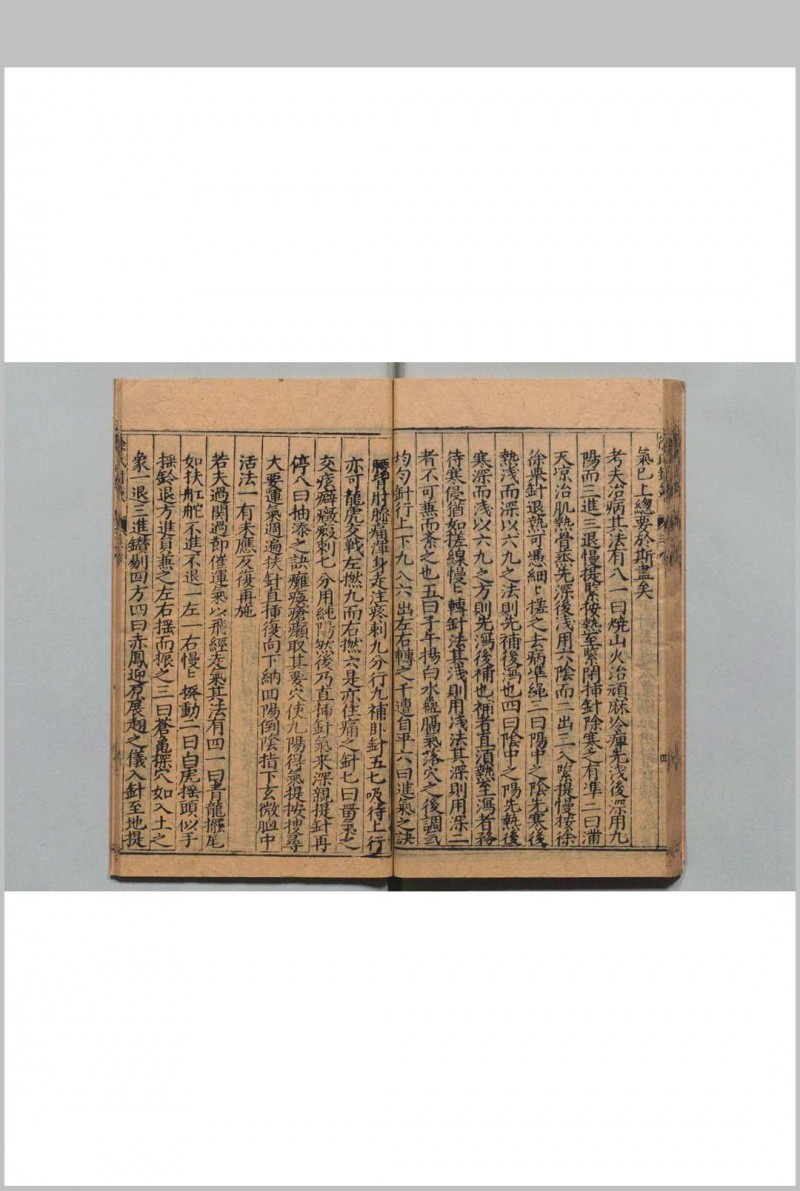 氣已上總要於斯盡矣
考夫治病其法有八一曰燒山火治頑麻冷痺先淺後深用九
陽而三進三退慢提緊按熱至緊閉揷針除寒之有凖二曰透
天凉治肌熱骨蒸先深後淺用六陰而三出三入緊提慢按徐
徐舉針退熱可憑細〻搓之去病凖繩三曰陽中之陰先寒後
熱淺而深以六九之法則先補後瀉也四曰陰中之陽先熱後
寒深而淺以六九之方則先瀉後補也補者直須熱至瀉者務
待寒侵猶如搓線慢〻轉針法其淺則用淺法其深則用深二
者不可兼而紊之也五曰子午搗臼水蠱膈氣落穴之後調氣
均匀針行上下九入六出左右轉之千遭自平六曰進氣之訣
腰背肘膝痛渾身走注疼刺九分行九補卧針五七吸待上行
亦可龍虎交戰左撚九而右撚六是亦住痛之針七曰畱氣之
交痃癖癥瘕刺七分用純陽然後乃直揷針氣來深親提針再
停八曰抽添之訣癱瘓瘡癩取其要穴使九陽得氣提按搜尋
大要運氣週遍扶針直揷復向下納回陽倒陰指下玄微胸中
活法一有未應反復再施
若夫過關過節催運氣以飛經走氣其法有四一曰青龍擺尾
如扶舡舵不進不退一左一右慢〻撥動二曰白虎搖頭似手
搖鈴退方進員兼之左右搖而振之三曰蒼龜探穴如入土之
象一退三進鑽剔四方四曰赤鳳迎源展翅之儀入針至地提